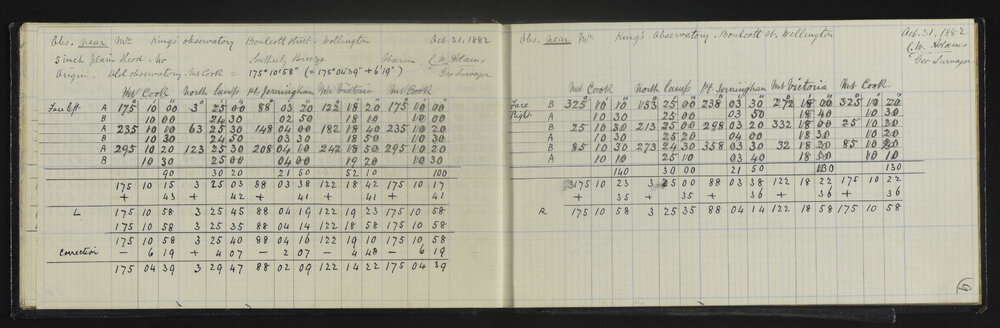 Obs. near Mr King's observatory Boulcott Street. Wellington Oct. 31. 1882
5 inch plain theod. No Southerly Breeze Observer C.W. Adams
Origin. Old observatory. Mt Cook = 175° 10' 58" (= 175° 04' 39" + 6' 19") Geo Surveyor
Mt Cook North lamp Pt Jerningham Mt Victoria Mt Cook
Face left A 175° 10' 00" 3° 25' 00" 88° 03' 20" 122° 18' 20" 175° 10' 00"
B 10 00 24 30 02 50 18 10 10 00
A 235 10 10 63 25 30 148 04 00 182 18 40 235 10 20
B 10 30 24 50 03 30 18 50 10 30
A 295 10 20 123 25 30 208 04 10 242 18 50 295 10 20
B 10 30 25 00 04 00 19 20 10 30
90 30 20 21 50 52 10 100
175 10 15 3 25 03 88 03 38 122 18 42 175 10 17
+ 43 + 42 + 41 + 41 + 41
L 175 10 58 3 25 45 88 04 19 122 19 23 175 10 58
175 10 58 3 25 35 88 04 14 122 18 58 175 10 58
175 10 58 3 25 40 88 04 16 122 19 10 175 10 58
Correction - 6 19 + 4 07 - 2 07 - 4 48 - 6 19
175 04 39 3 29 47 88 02 09 122 14 22 175 04 39
Obs. near Mr King's Observatory. Boulcott St. Wellington Oct. 31. 1882
C.W. Adams
Geo Surveyor
Mt Cook North lamp Pt Jerningham Mt Victoria Mt Cook
Face Right B 325° 10' 10" 183° 25' 00" 238° 03' 30" 272° 18' 00" 325° 10' 20"
A 10 30 25 00 03 50 18 40 10 30
B 25 10 30 213 25 00 298 03 20 332 18 00 25 10 30
A 10 30 25 20 04 00 18 30 10 20
B 85 10 30 273 24 30 358 03 30 32 18 30 85 10
A 10 10 25 10 03 40 18 10 10
140 30 00 21 50 130 130
175 10 23 3 25 00 88 03 38 122 18 22 175 10 22
+ 35 + 35 + 36 + 36 + 36
R 175 10 58 3 25 35 88 04 14 122 18 58 175 10 58